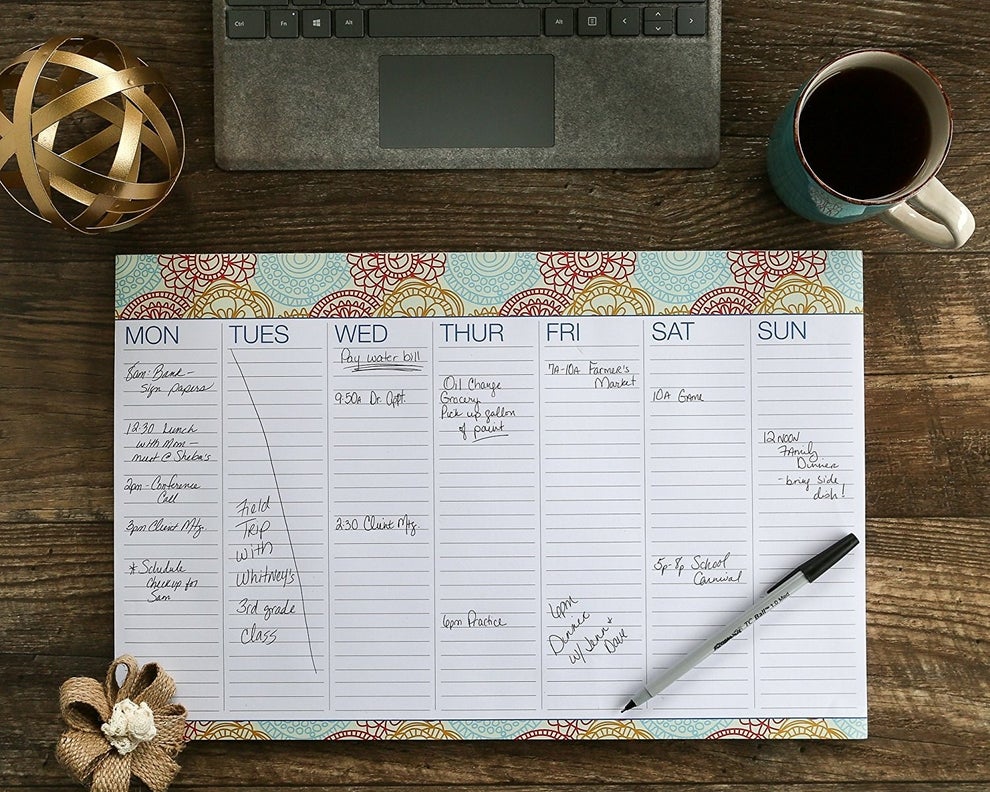 Ctrl
Fn
Alt
Alt
MON
8am: Bank -
Sign papers
12:30 Lunch
with Mom -
meet @ Sheba's
2pm - Conference
Call
3pm Client Mtg.
* Schedule
checkup for
Sam
TUES
Field
Trip
with
Whitney's
3rd grade
class
WED
Pay water bill
9:50A Dr. Appt.
2:30 Client Mtg.
THUR
Oil Change
Grocery
Pick up gallon
of paint
6pm Practice
FRI
7A-10A Farmer's
Market
6pm
Dinner
w/ Jenn +
Dave
SAT
10A Game
5p-8p School
Carnival
SUN
12 noon
Family
Dinner
- bring side
dish!
TC Ball 1.0 Med